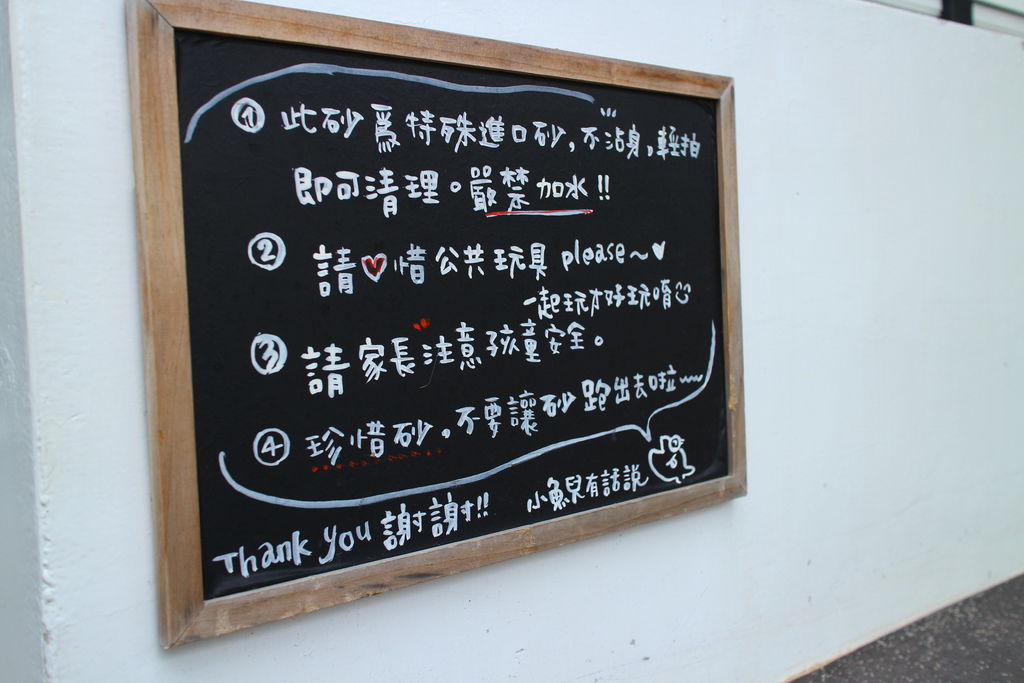 ① 此砂爲特殊進口砂,不沾身,輕拍
即可清理。嚴禁加水!!
② 請♥惜公共玩具 please~♥
一起玩才好玩唷
③ 請家長注意孩童安全。
④ 珍惜砂,不要讓砂跑出去啦~~
小魚兒有話說
Thank you 謝謝!!